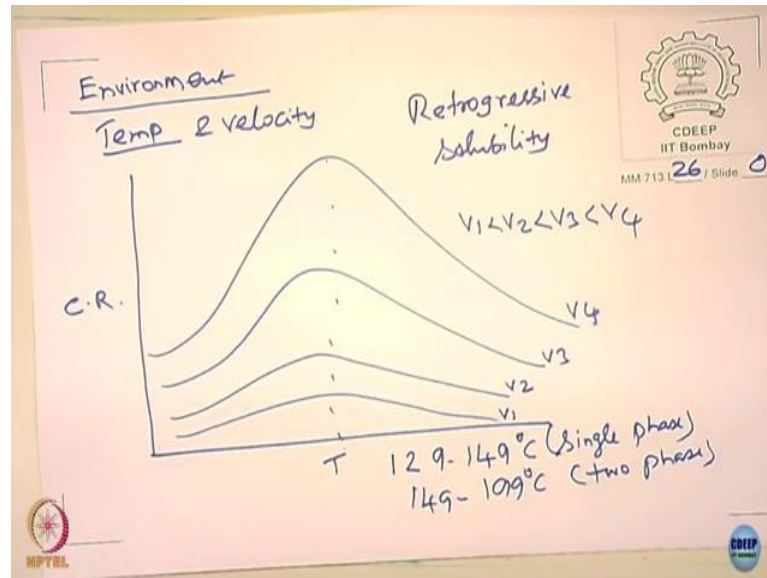 Environment
Temp & velocity
Retrogressive
Solubility
CDEEP
IIT Bombay
MM 713 L 26 / Slide 0
V1<V2<V3<V4
C.R.
V4
V3
V2
V1
T
129-149°C (Single phase)
149-199°C (two phase)
NPTEL
CDEEP